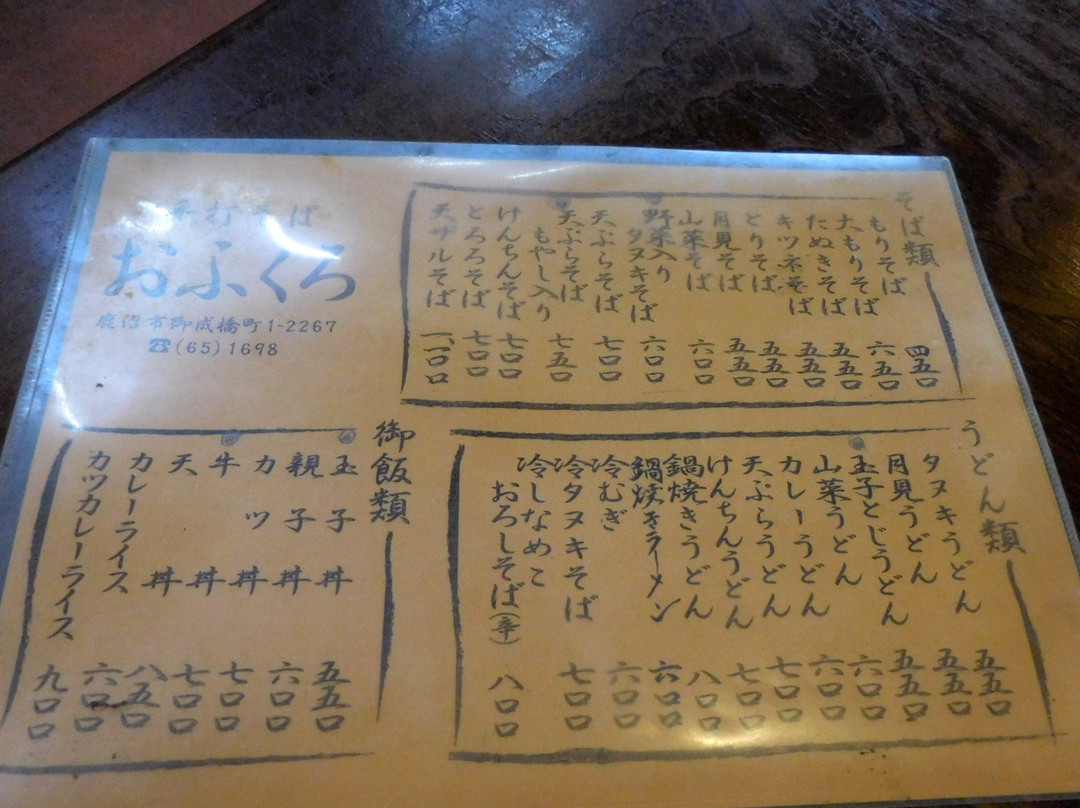 手打そば
おふくろ
鹿沼市御成橋町1-2267
☎(65)1698
そば類
もりそば 四五〇
大もりそば 六五〇
たぬきそば 五五〇
キツネそば 五五〇
とりそば 五五〇
月見そば 五五〇
山菜そば 六〇〇
野菜入り
タヌキそば 六〇〇
天ぷらそば 七〇〇
天ぷらそば
もやし入り 七五〇
けんちんそば 七〇〇
とろろそば 七〇〇
天ザルそば 一一〇〇
うどん類
タヌキうどん 五五〇
月見うどん 五五〇
玉子とじうどん 五五〇
山菜うどん 六〇〇
カレーうどん 六〇〇
天ぷらうどん 七〇〇
けんちんうどん 七〇〇
鍋焼きうどん 八〇〇
鍋焼きラーメン 六〇〇
冷むぎ 六〇〇
冷タヌキそば 七〇〇
冷しなめこ
おろしそば(辛) 八〇〇
御飯類
玉子丼 五五〇
親子丼 六〇〇
カツ丼 七〇〇
牛丼 七〇〇
天丼 八五〇
カレーライス 六〇〇
カツカレーライス 九〇〇